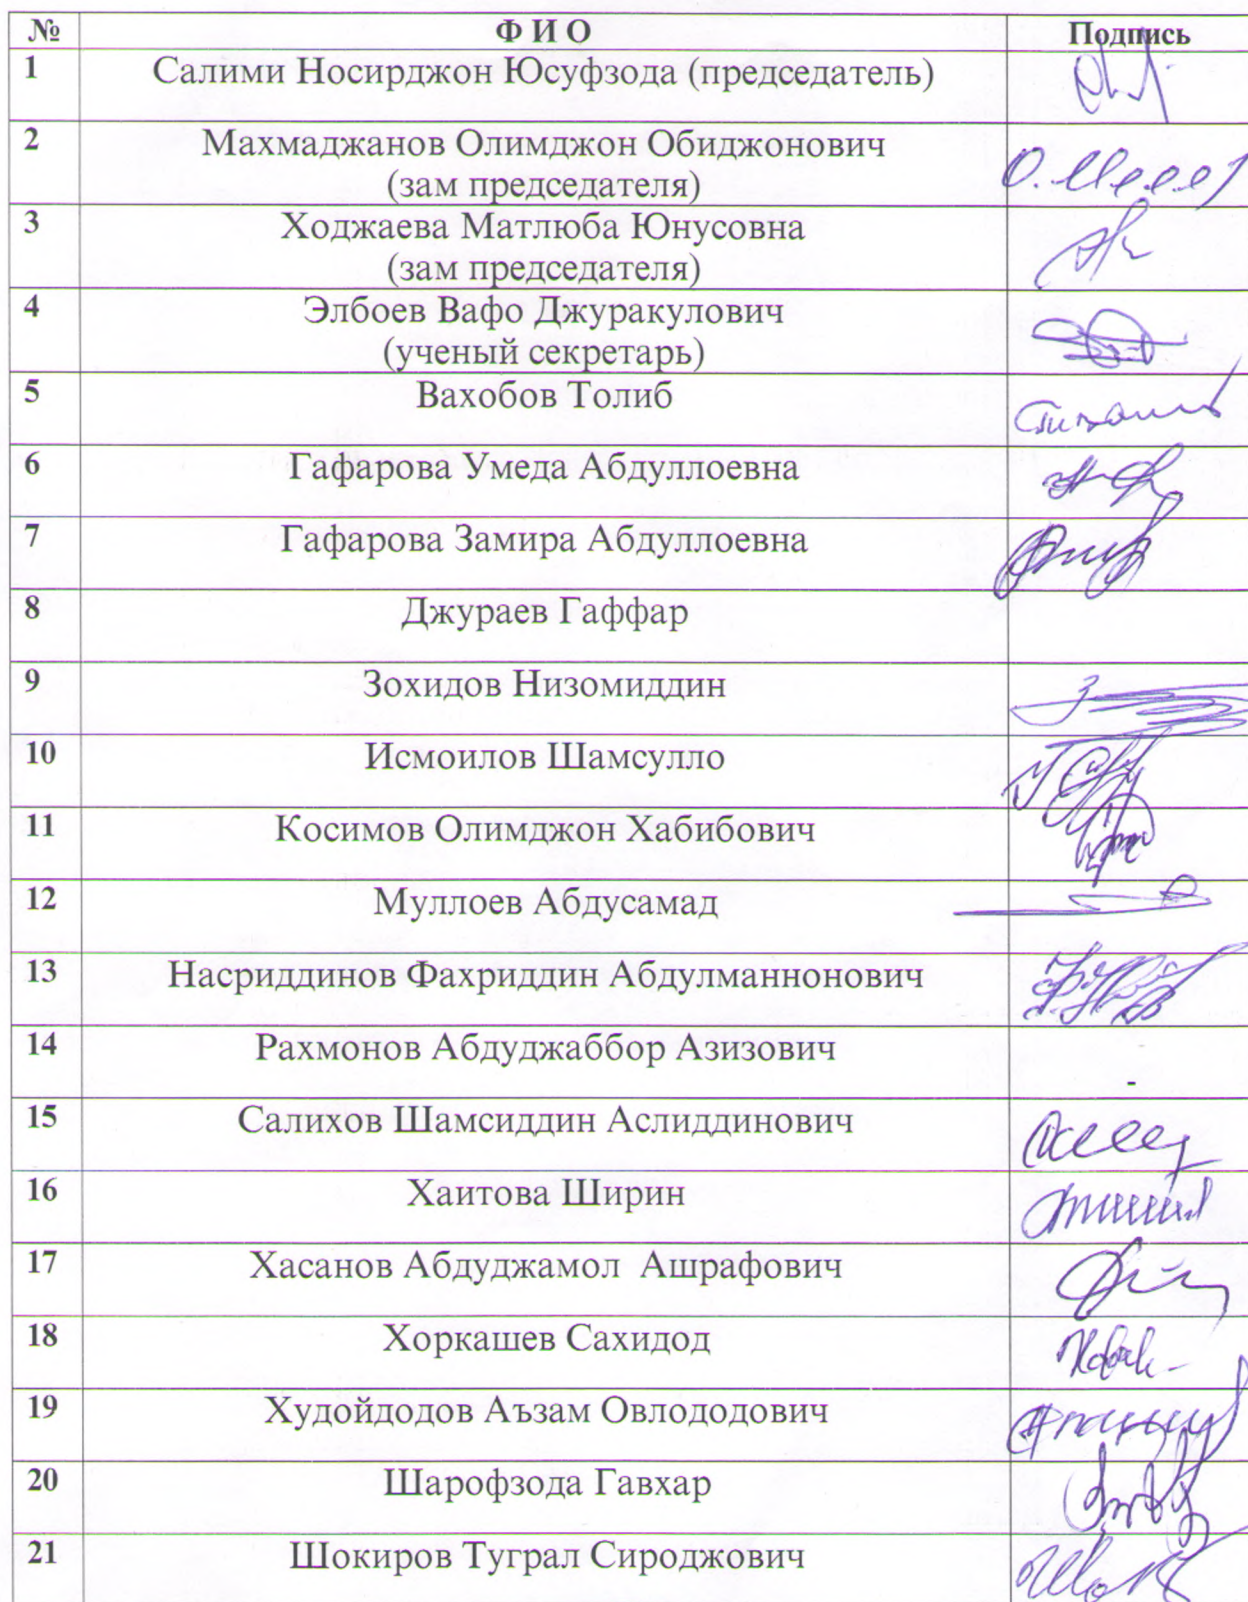 № Ф И О Подпись
1 Салими Носирджон Юсуфзода (председатель)
2 Махмаджанов Олимджон Обиджонович
(зам председателя)
3 Ходжаева Матлюба Юнусовна
(зам председателя)
4 Элбоев Вафо Джуракулович
(ученый секретарь)
5 Вахобов Толиб
6 Гафарова Умеда Абдуллоевна
7 Гафарова Замира Абдуллоевна
8 Джураев Гаффар
9 Зохидов Низомиддин
10 Исмоилов Шамсулло
11 Косимов Олимджон Хабибович
12 Муллоев Абдусамад
13 Насриддинов Фахриддин Абдулманнонович
14 Рахмонов Абдуджаббор Азизович
-
15 Салихов Шамсиддин Аслиддинович
16 Хаитова Ширин
17 Хасанов Абдуджамол Ашрафович
18 Хоркашев Сахидод
19 Худойдодов Аъзам Овлододович
20 Шарофзода Гавхар
21 Шокиров Туграл Сироджович